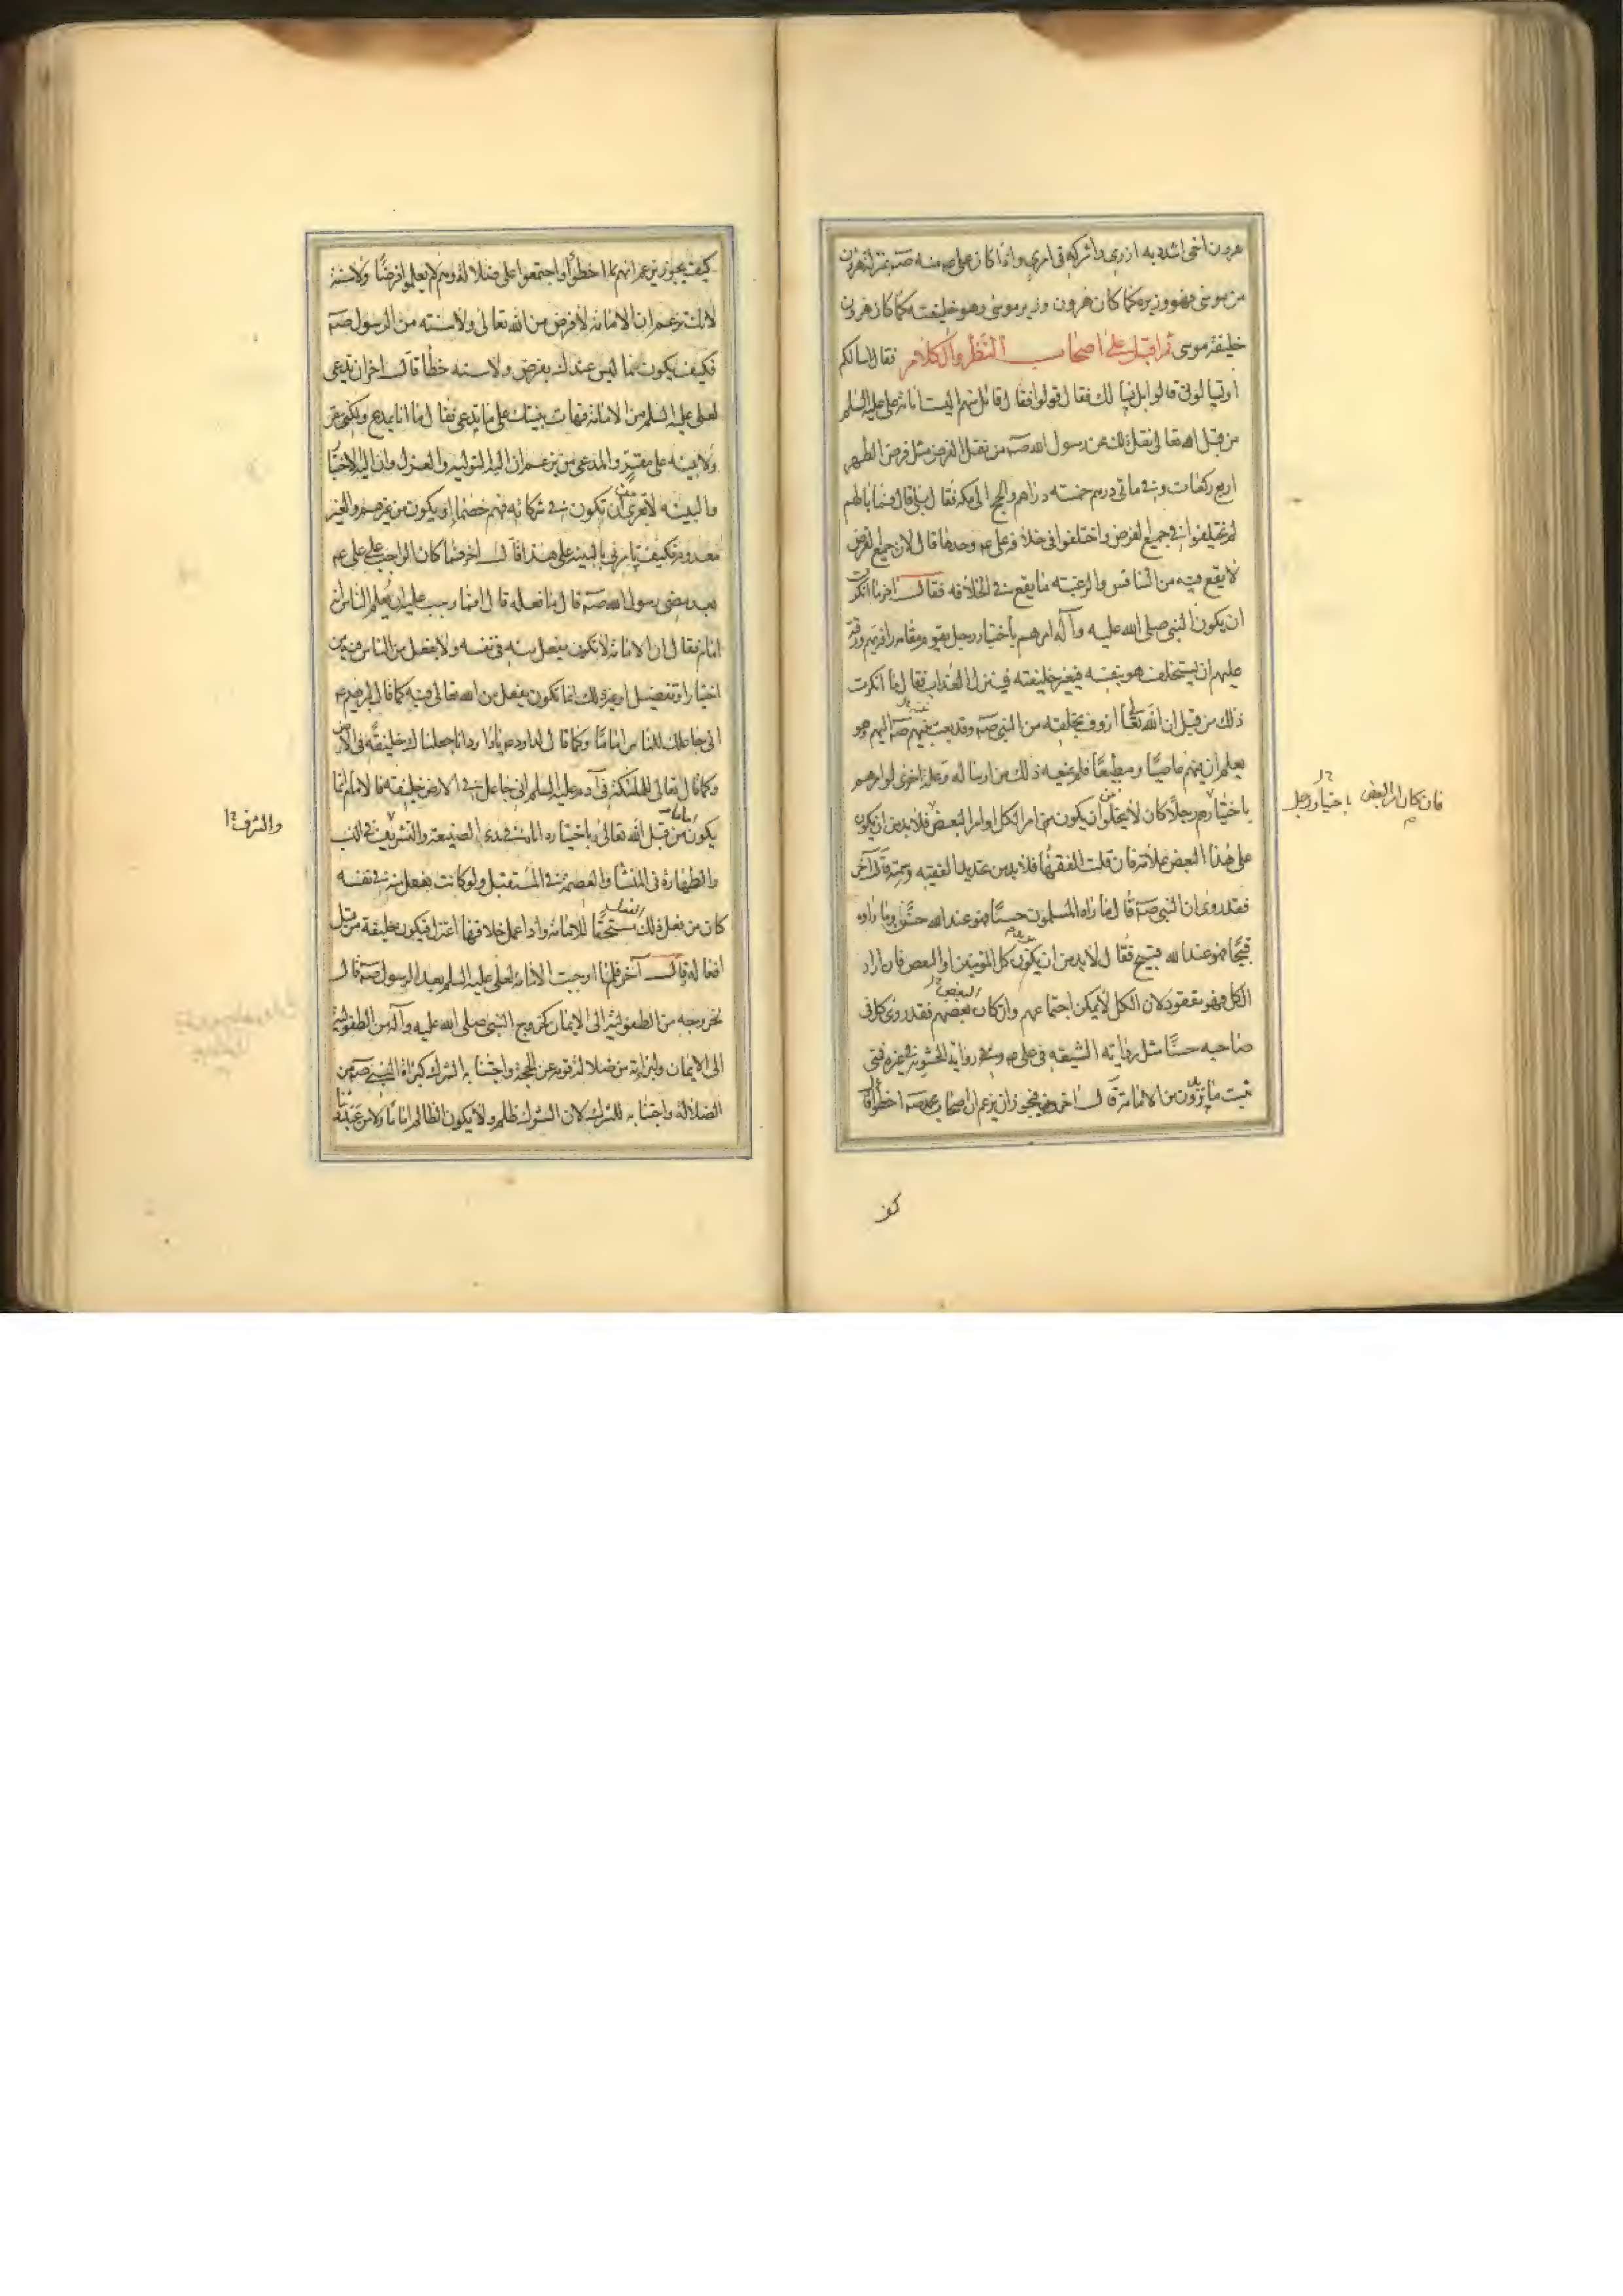 هرون اخى اشدد به ازرى واشركه فى امرى واذا كان على ع منه صۤ بمنزلة هرون
من موسى فهو وزيره كما كان هرون وزير موسى وهو خليفته كما كان هرون
خليفة موسى ثم اقبل على اصحاب النظر والكلام فقال اسالكم
او تسالونى قالوا بل نسالك فقال قولوا فقال قائل منهم اليست امامة على عليه السلم
من قبل الله تعالى نقل ذلك عن رسول الله صۤ من نقل الفرض مثل فرض الظهر
اربع ركعات وفى ماتى درهم خمسة دراهم والحج الى مكة فقال بلى قال فما بالهم
لم يختلفوا فى جميع الفرض واختلفوا فى خلافة على ع وحدها قال لان جميع الفرض
لا يقع فيه من التنافس والرغبة ما يقع فى الخلافة فقال آخر ما انكرت
ان يكون النبى صلى الله عليه وآله امرهم باختيار رجل يقوم مقامه رافة بهم ورقة
عليهم ان يستخلف هو بنفسه فيعصى خليفته فينزل العذاب فقال ما انكرت
ذلك من قبل ان الله تعالى ارؤف بخلقه من النبى صۤ وقد بعث نبيهم صۤ اليهم وهو
يعلم ان منهم عاصيًا ومطيعًا فلم يمنعه ذلك من ارساله وعلة اخرى لو امرهم
باختيار رجل منهم كان لا يخلو من ان يكون امر الكل او امر البعض فلا بد من ان يكون
على هذا البعض علامة فان قلت الفقهاء فلا بد من تحديد الفقيه وسمته قال آخر
فقد روى ان النبى صۤ قال ما راه المسلمون حسنًا فهو عند الله حسن وما راوه
قبيحًا فهو عند الله قبيح فقال لا بد من ان يكون كل المؤمنين او البعض فان اراد
الكل فهو مفقود لان الكل لا يمكن اجتماعهم وان كان بعضهم فقد روى كل فى
صاحبه حسنًا مثل رواية الشيعة فى على ع ورواية الحشوية فى غيره فمتى
يثبت ما يريدون من الامامة قال آخر فيجوز ان يزعم ان اصحاب محمد صۤ اخطأوا قال
فان كان امر البعض باختيار رجل
كيف
كيف يجوز يزعم انهم اخطأوا واجتمعوا على ضلالة وهم لم يعلموا فرضًا ولا سنة
لانك تزعم ان الامامة لا فرض من الله تعالى ولا سنة من الرسول صۤ
فكيف يكون ما ليس عندك بفرض ولا سنة خطأ قال آخر ان تدعى
لعلى عليه السلم من الامامة فهات بينتك على ما تدعى فقال ما انا بمدع ولكنى مقر
ولا بينة على مقر والمدعى من يزعم ان اليه التولية والعزل وان اليه الاختيار
والبينة لا تعرى من ان تكون من شركائه فهم خصماء او يكون من غيرهم والغير
معدوم فكيف يؤتى بالبينة على هذا قال آخر فما كان الواجب على على ع
بعد مضى رسول الله صۤ قال ما فعله قال اما وجب عليه ان يعلم الناس انه
امام فقال ان الامامة لا تكون بفعل منه فى نفسه ولا بفعل من الناس فيه من
اختيار او تفضيل او غير ذلك انما تكون بفعل من الله تعالى فيه كما قال لابرهيم ع
انى جاعلك للناس امامًا وكما قال لداود ع ياداود انا جعلناك خليفة فى الارض
وكما قال تعالى للملئكة فى آدم عليه السلم انى جاعل فى الارض خليفة فالامام انما
يكون اماما من قبل الله تعالى وباختياره اياه فى بدء الصنيعة والتشريف فى النسب
والطهارة فى المنشأ والعصمة فى المستقبل ولو كانت بفعل منه فى نفسه
كان من فعل ذلك الفعل مستحقًا للامامة واذا عمل خلافها اعتزل فيكون خليفة من قبل
افعاله قال آخر فلم اوجبت الامامة لعلى عليه السلم بعد الرسول صۤ قال
لخروجه من الطفولية الى الايمان كخروج النبى صلى الله عليه وآله من الطفولية
الى الايمان والبراءة من ضلالة قومه عن الحجة واجتنابه الشرك كبراءة النبى صۤ من
الضلالة واجتنابه للشرك لان الشرك ظلم ولا يكون الظالم امامًا ولا من عبد وثنًا
والشرف